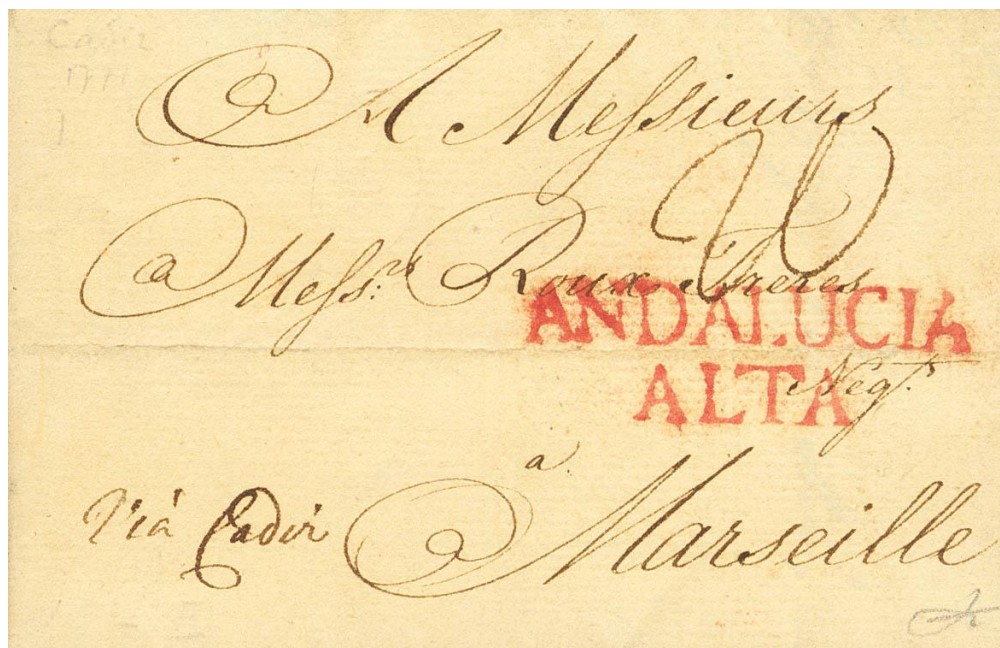 Cadiz
1771
A Messieurs
a Mess.rs Roux Freres
ANDALUCIA
ALTA
Negt.s
a
Via Cadix
Marseille